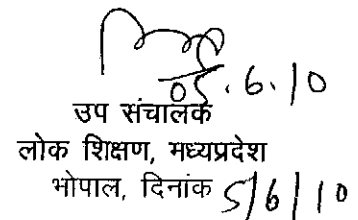 05.6.10
उप संचालक
लोक शिक्षण, मध्यप्रदेश
भोपाल, दिनांक 5/6/10